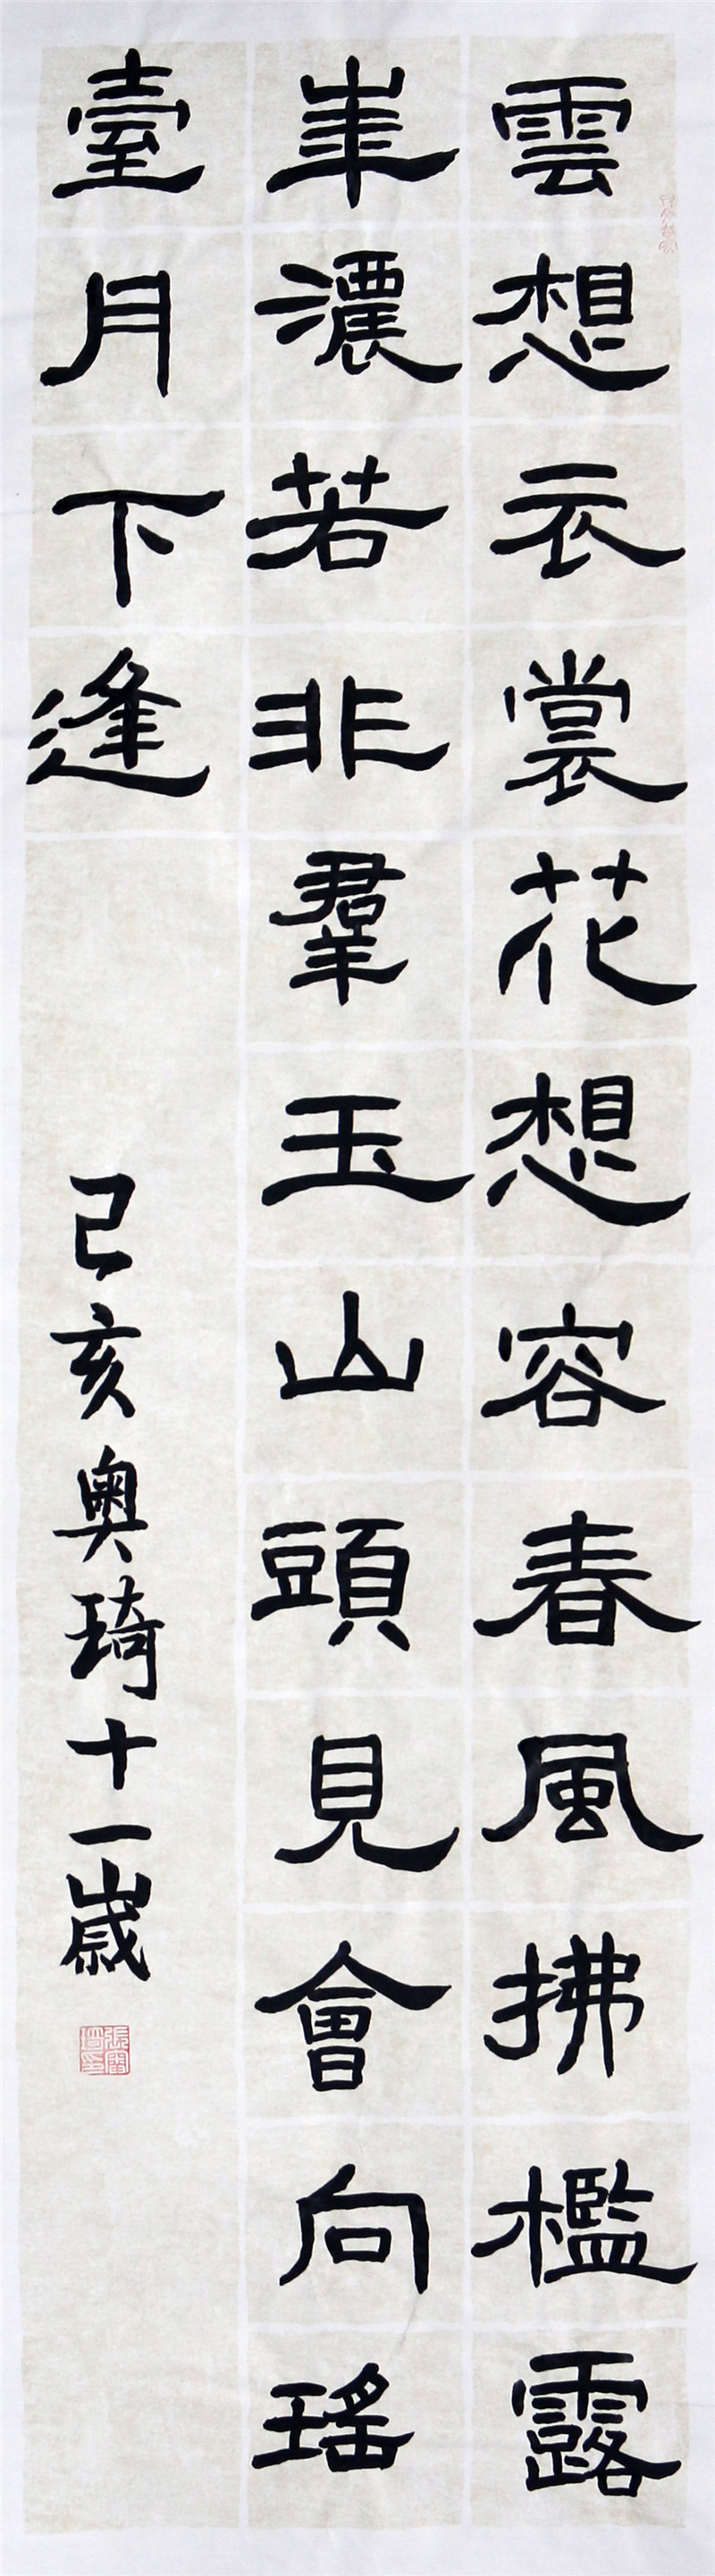 雲想衣裳花想容春風拂檻露
華濃若非羣玉山頭見會向瑤
臺月下逢
己亥奧琦十一歲